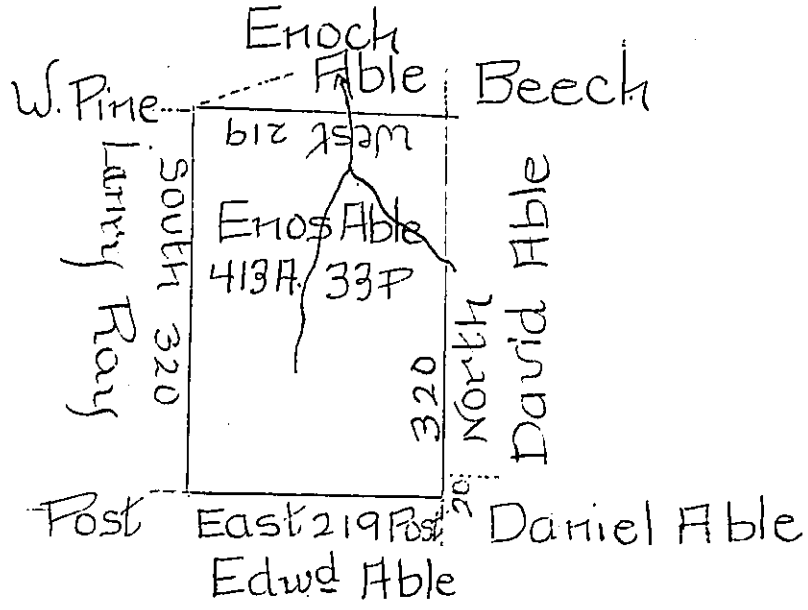 Enoch
Able
W. Pine
Beech
West 219
Larry Ray
South 320
Enos Able
413A. 33P
320
North
David Able
20
Post
East 219 Post
Daniel Able
Edwd Able